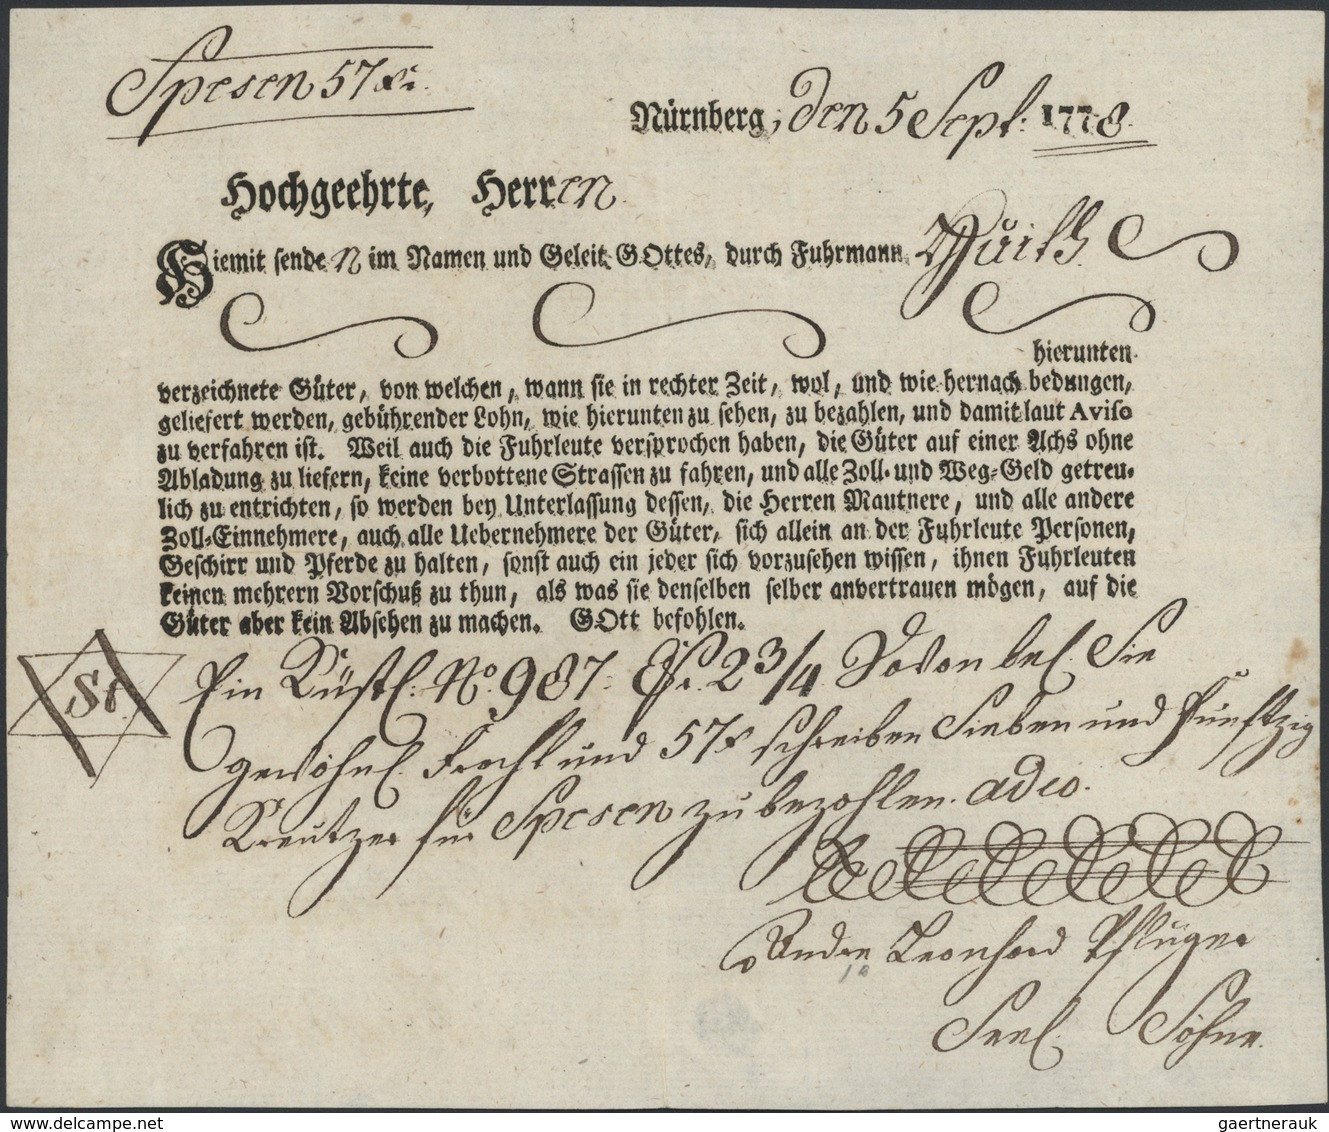 Spesen 57 xr.
Nürnberg, den 5 Sept: 1778.
Hochgeehrte, Herren
Hiemit sende n im Namen und Geleit GOttes, durch Fuhrmann
hierunten
verzeichnete Güter, von welchen, wann sie in rechter Zeit, wol, und wie hernach bedungen,
geliefert werden, gebührender Lohn, wie hierunten zu sehen, zu bezahlen, und damit laut Aviso
zu verfahren ist. Weil auch die Fuhrleute versprochen haben, die Güter auf einer Achs ohne
Abladung zu liefern, keine verbottene Strassen zu fahren, und alle Zoll- und Weg-Geld getreu-
lich zu entrichten, so werden bey Unterlassung dessen, die Herren Mautnere, und alle andere
Zoll-Einnehmere, auch alle Uebernehmere der Güter, sich allein an der Fuhrleute Personen,
Geschirr und Pferde zu halten, sonst auch ein jeder sich vorzusehen wissen, ihnen Fuhrleuten
keinen mehrern Vorschuß zu thun, als was sie denselben selber anvertrauen mögen, auf die
Güter aber kein Absehen zu machen. GOtt befohlen.
St. Ein Küstl. No. 987. 2 3/4 Davon bel. Sie
gewöhnl. Fracht und 57 x schreiben Sieben und Fünftzig
Kreutzer für Spesen zu bezahlen. adio.
Andre Leonhard Pflüger
Seel. Söhne.
gaertnerauk@yahoo.com